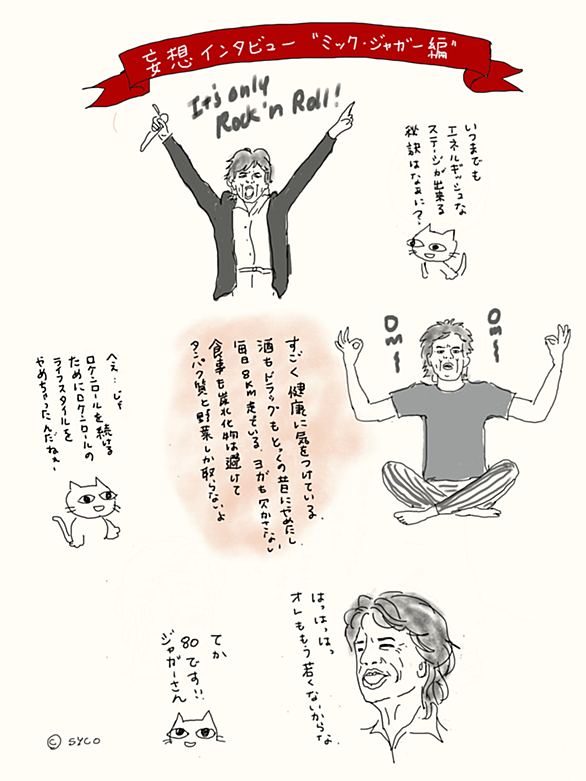 妄想インタビュー "ミック・ジャガー編"
It's only
Rock'n Roll!
いつまでも
エネルギッシュな
ステージが出来る
秘訣はなぁに?
Om〜
Om〜
すごく健康に気をつけている。
酒もドラッグもとっくの昔にやめたし
毎日8km走ている。ヨガも欠かさない
食事も炭水化物は避けて
タンパク質と野菜しか取らないよ
へぇ…じゃ
ロケンロールを続ける
ためにロケンロールの
ライフスタイルを
やめちゃったんだねぇー
はっはっはっ
オレももう若くないからな。
てか
80です!!
ジャガーさん
© SYCO